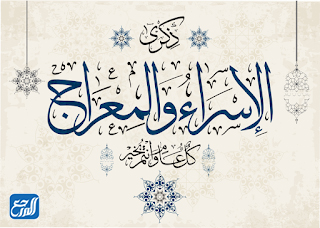 ذكرى
الإسراء والمعراج
كل عام وأنتم بخير
المرجع